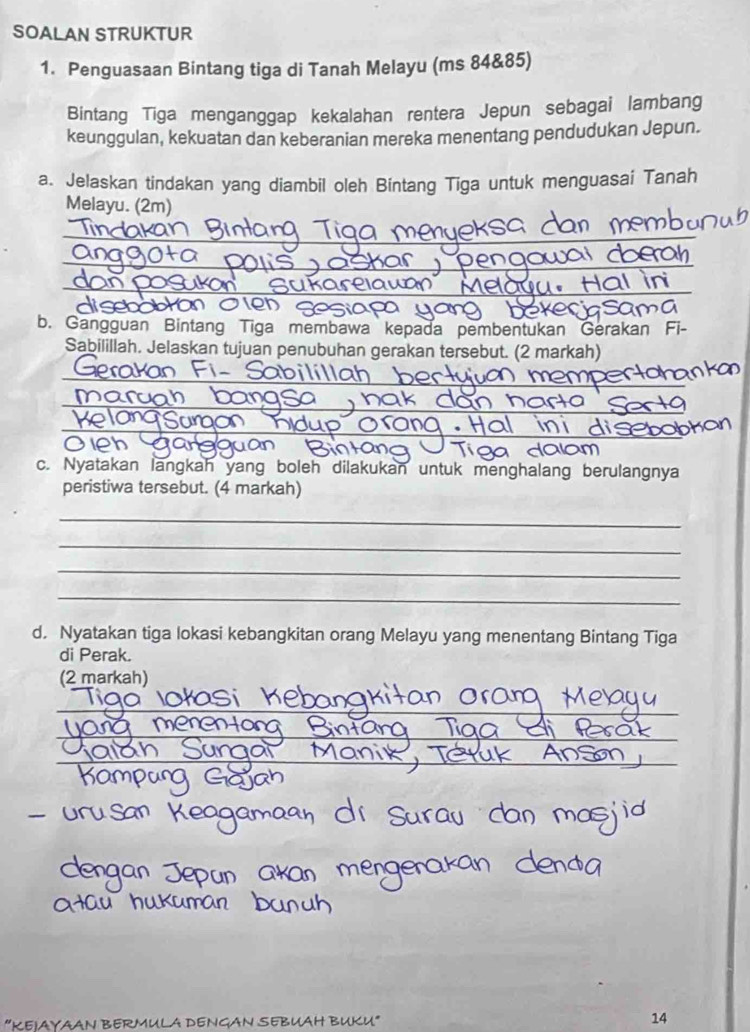 SOALAN STRUKTUR
1. Penguasaan Bintang tiga di Tanah Melayu (ms 84&85)
Bintang Tiga menganggap kekalahan rentera Jepun sebagai lambang
keunggulan, kekuatan dan keberanian mereka menentang pendudukan Jepun.
a. Jelaskan tindakan yang diambil oleh Bintang Tiga untuk menguasai Tanah
Melayu. (2m)
Tindakan Bintang Tiga menyeksa dan membunuh
anggota polis, askar, pengawai daerah
dan pasukan sukarelawan Melayu. Hal ini
disebabkan oleh sesiapa yang bekerjasama
b. Gangguan Bintang Tiga membawa kepada pembentukan Gerakan Fi-
Sabilillah. Jelaskan tujuan penubuhan gerakan tersebut. (2 markah)
Gerakan Fi- Sabilillah bertujuan mempertahankan
maruah bangsa, hak dan harta serta
kelangsungan hidup orang. Hal ini disebabkan
oleh gangguan Bintang Tiga dalam
c. Nyatakan langkah yang boleh dilakukan untuk menghalang berulangnya
peristiwa tersebut. (4 markah)
d. Nyatakan tiga lokasi kebangkitan orang Melayu yang menentang Bintang Tiga
di Perak.
(2 markah)
Tiga lokasi kebangkitan orang Melayu
yang menentang Bintang Tiga di Perak
ialah Sungai Manik, Teluk Anson,
Kampung Gajah
- urusan keagamaan di surau dan masjid
dengan Jepun akan mengenakan denda
atau hukuman bunuh
"KEJAYAAN BERMULA DENGAN SEBUAH BUKU"
14